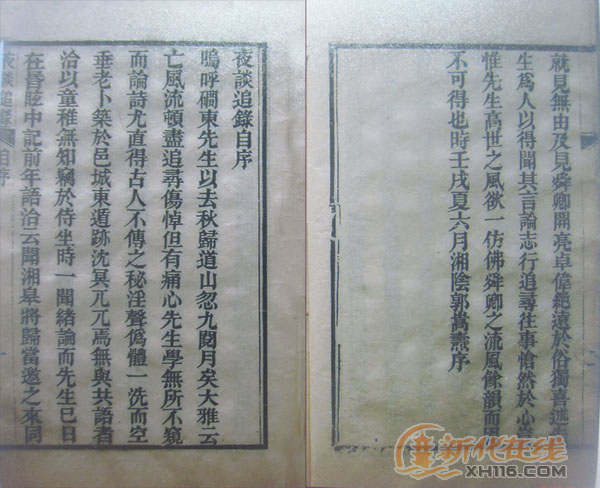 就見無由及見舜卿開亮卓偉絕遠於俗獨喜述
生爲人以得聞其言論志行追尋往事愴然於心
惟先生高世之風欲一仿佛舜卿之流風餘韻而
不可得也時壬戌夏六月湘陰郭嵩燾序
夜談追錄自序
嗚呼磵東先生以去秋歸道山忽九閱月矣大雅云
亡風流頓盡追尋傷悼但有痛心先生學無所不窺
而論詩尤直得古人不傳之秘淫聲僞體一洗而空
垂老卜築於邑城東遁跡沈冥兀兀焉無與共語者
洽以童稚無知竊於侍坐時一聞緒論而先生已日
在昏眩中記前年語洽云聞湘皋將歸當邀之來同
夜談追錄 自序
新化在线
XH116.COM